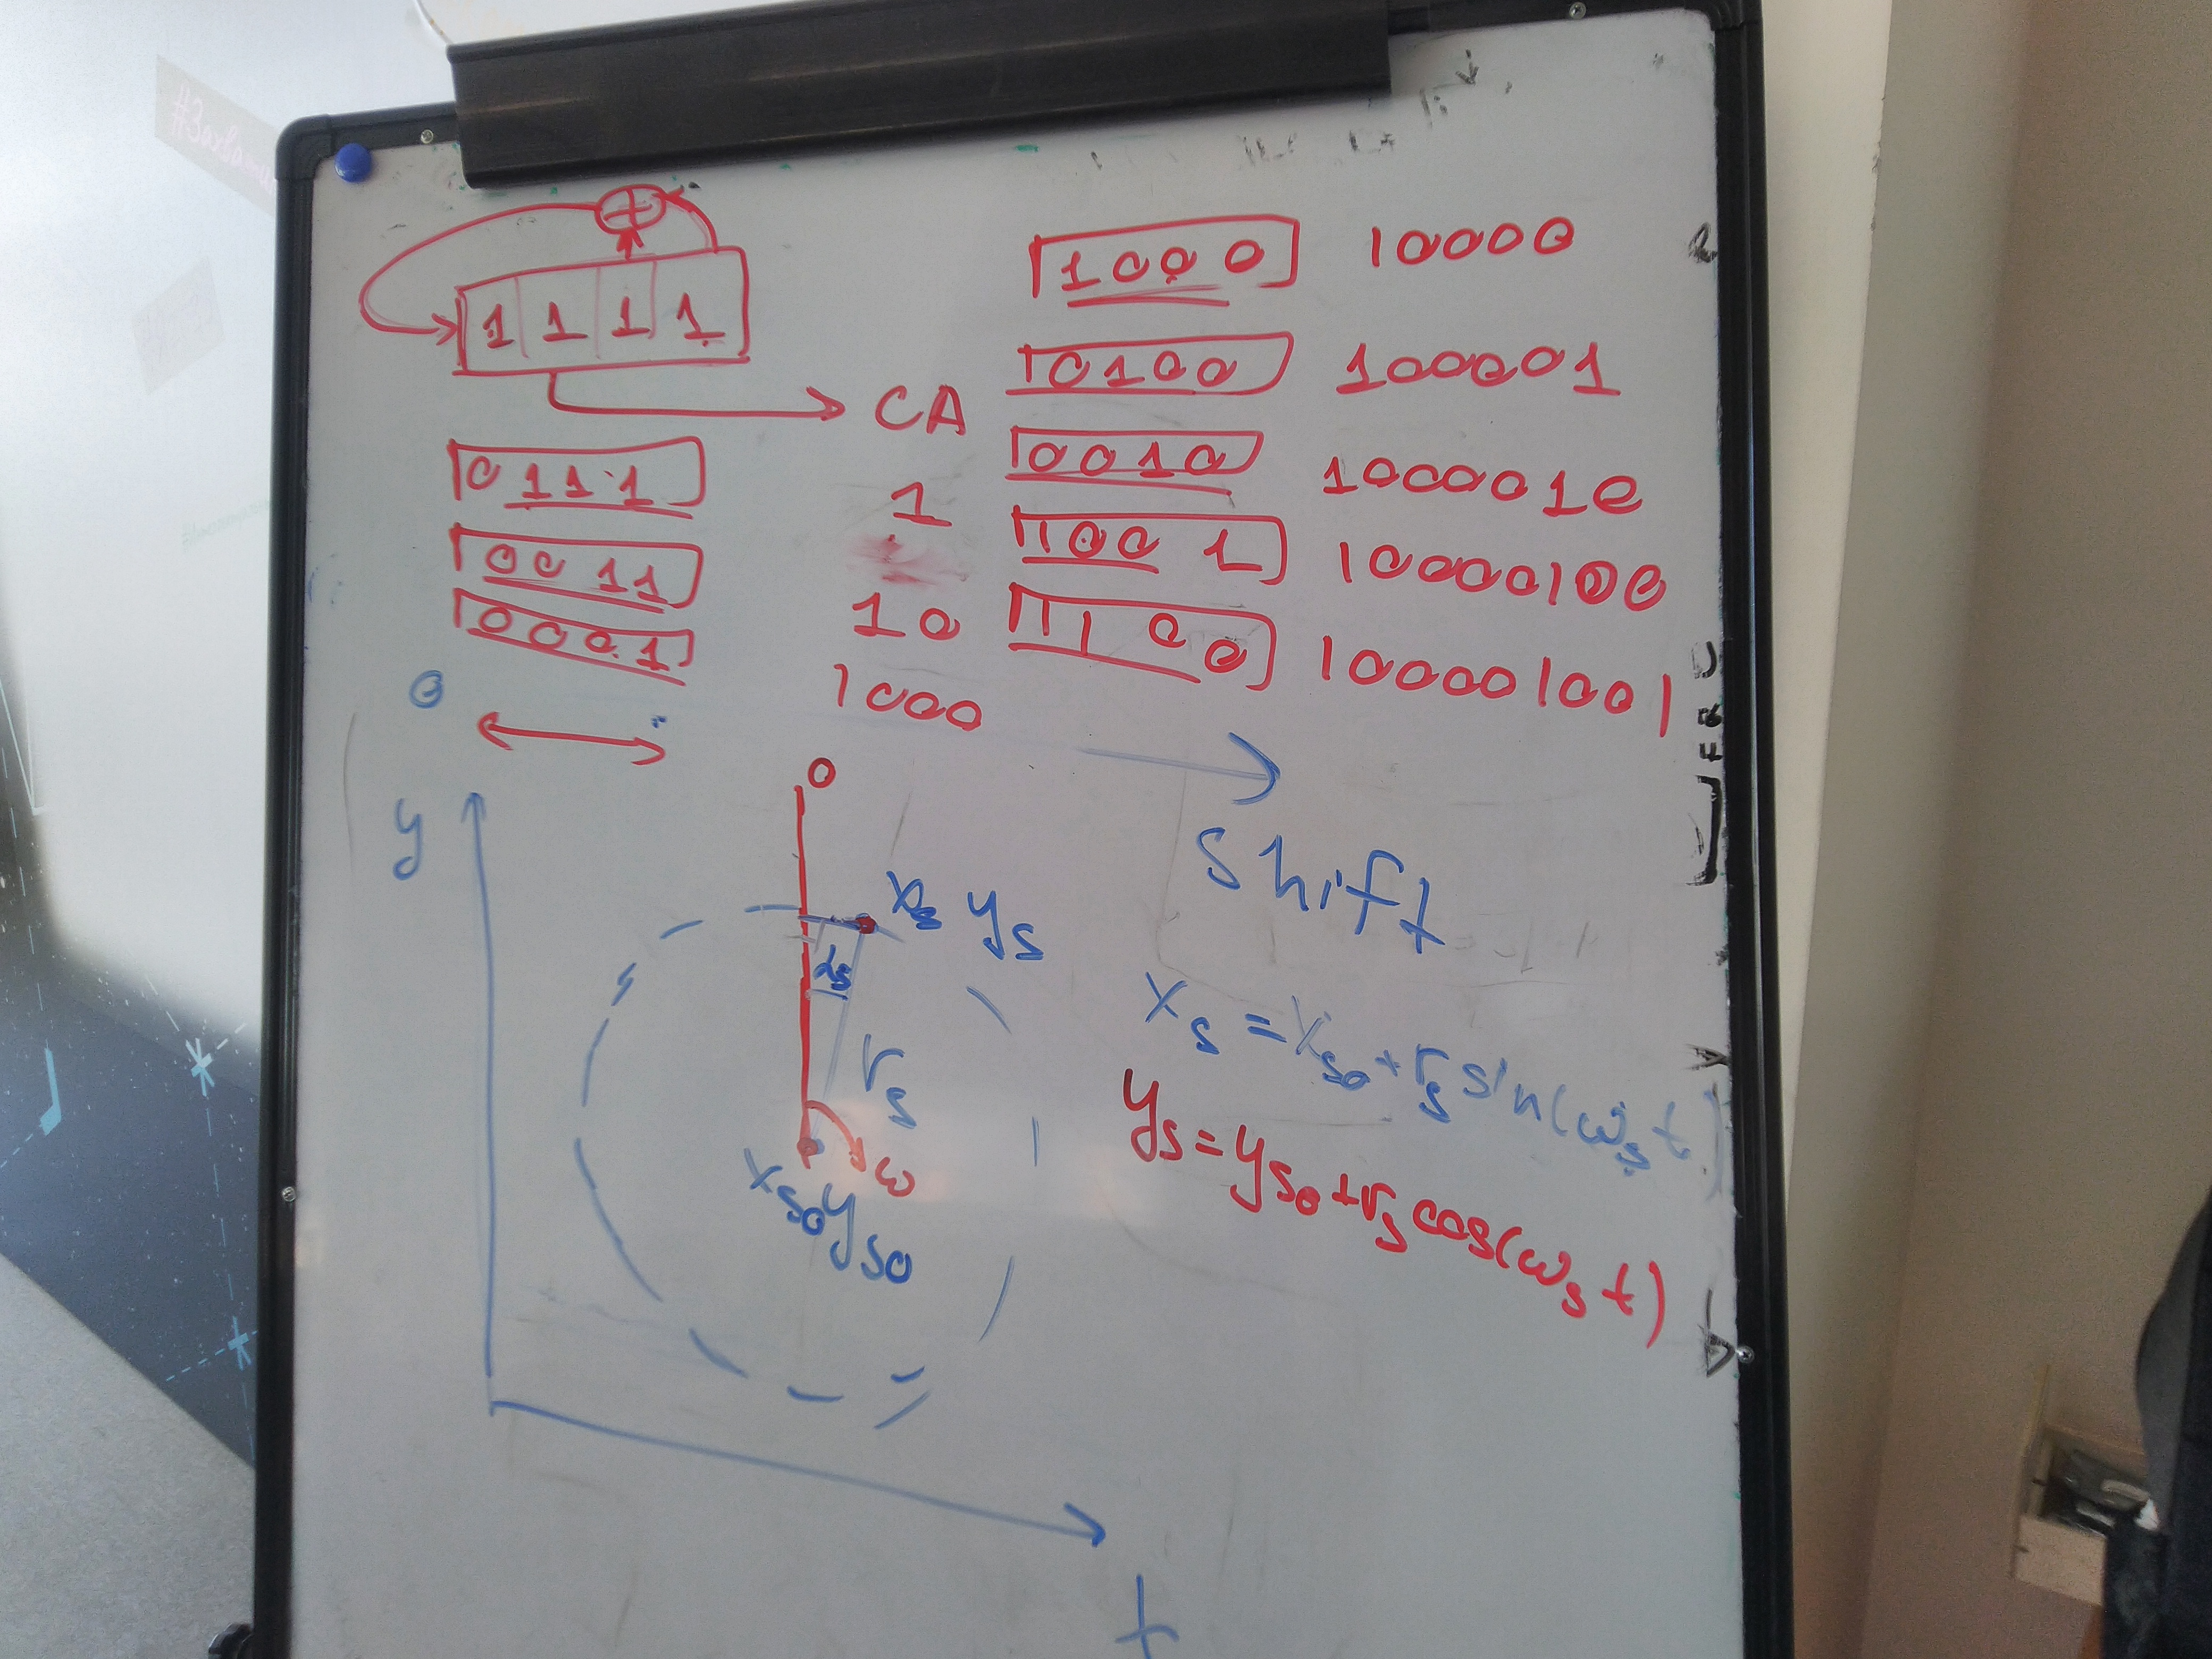 1 1 1 1
CA
0 1 1 1
1
0 0 1 1
1 0
0 0 0 1
1000
1000 10000
0100 100001
0010 1000010
1001 10000100
1100 100001001
0
y
0
xₛ yₛ
αₛ
rₛ
ω
xₛ₀ yₛ₀
t
shift
xₛ = xₛ₀ + rₛ sin(ωₛ t)
yₛ = yₛ₀ + rₛ cos(ωₛ t)